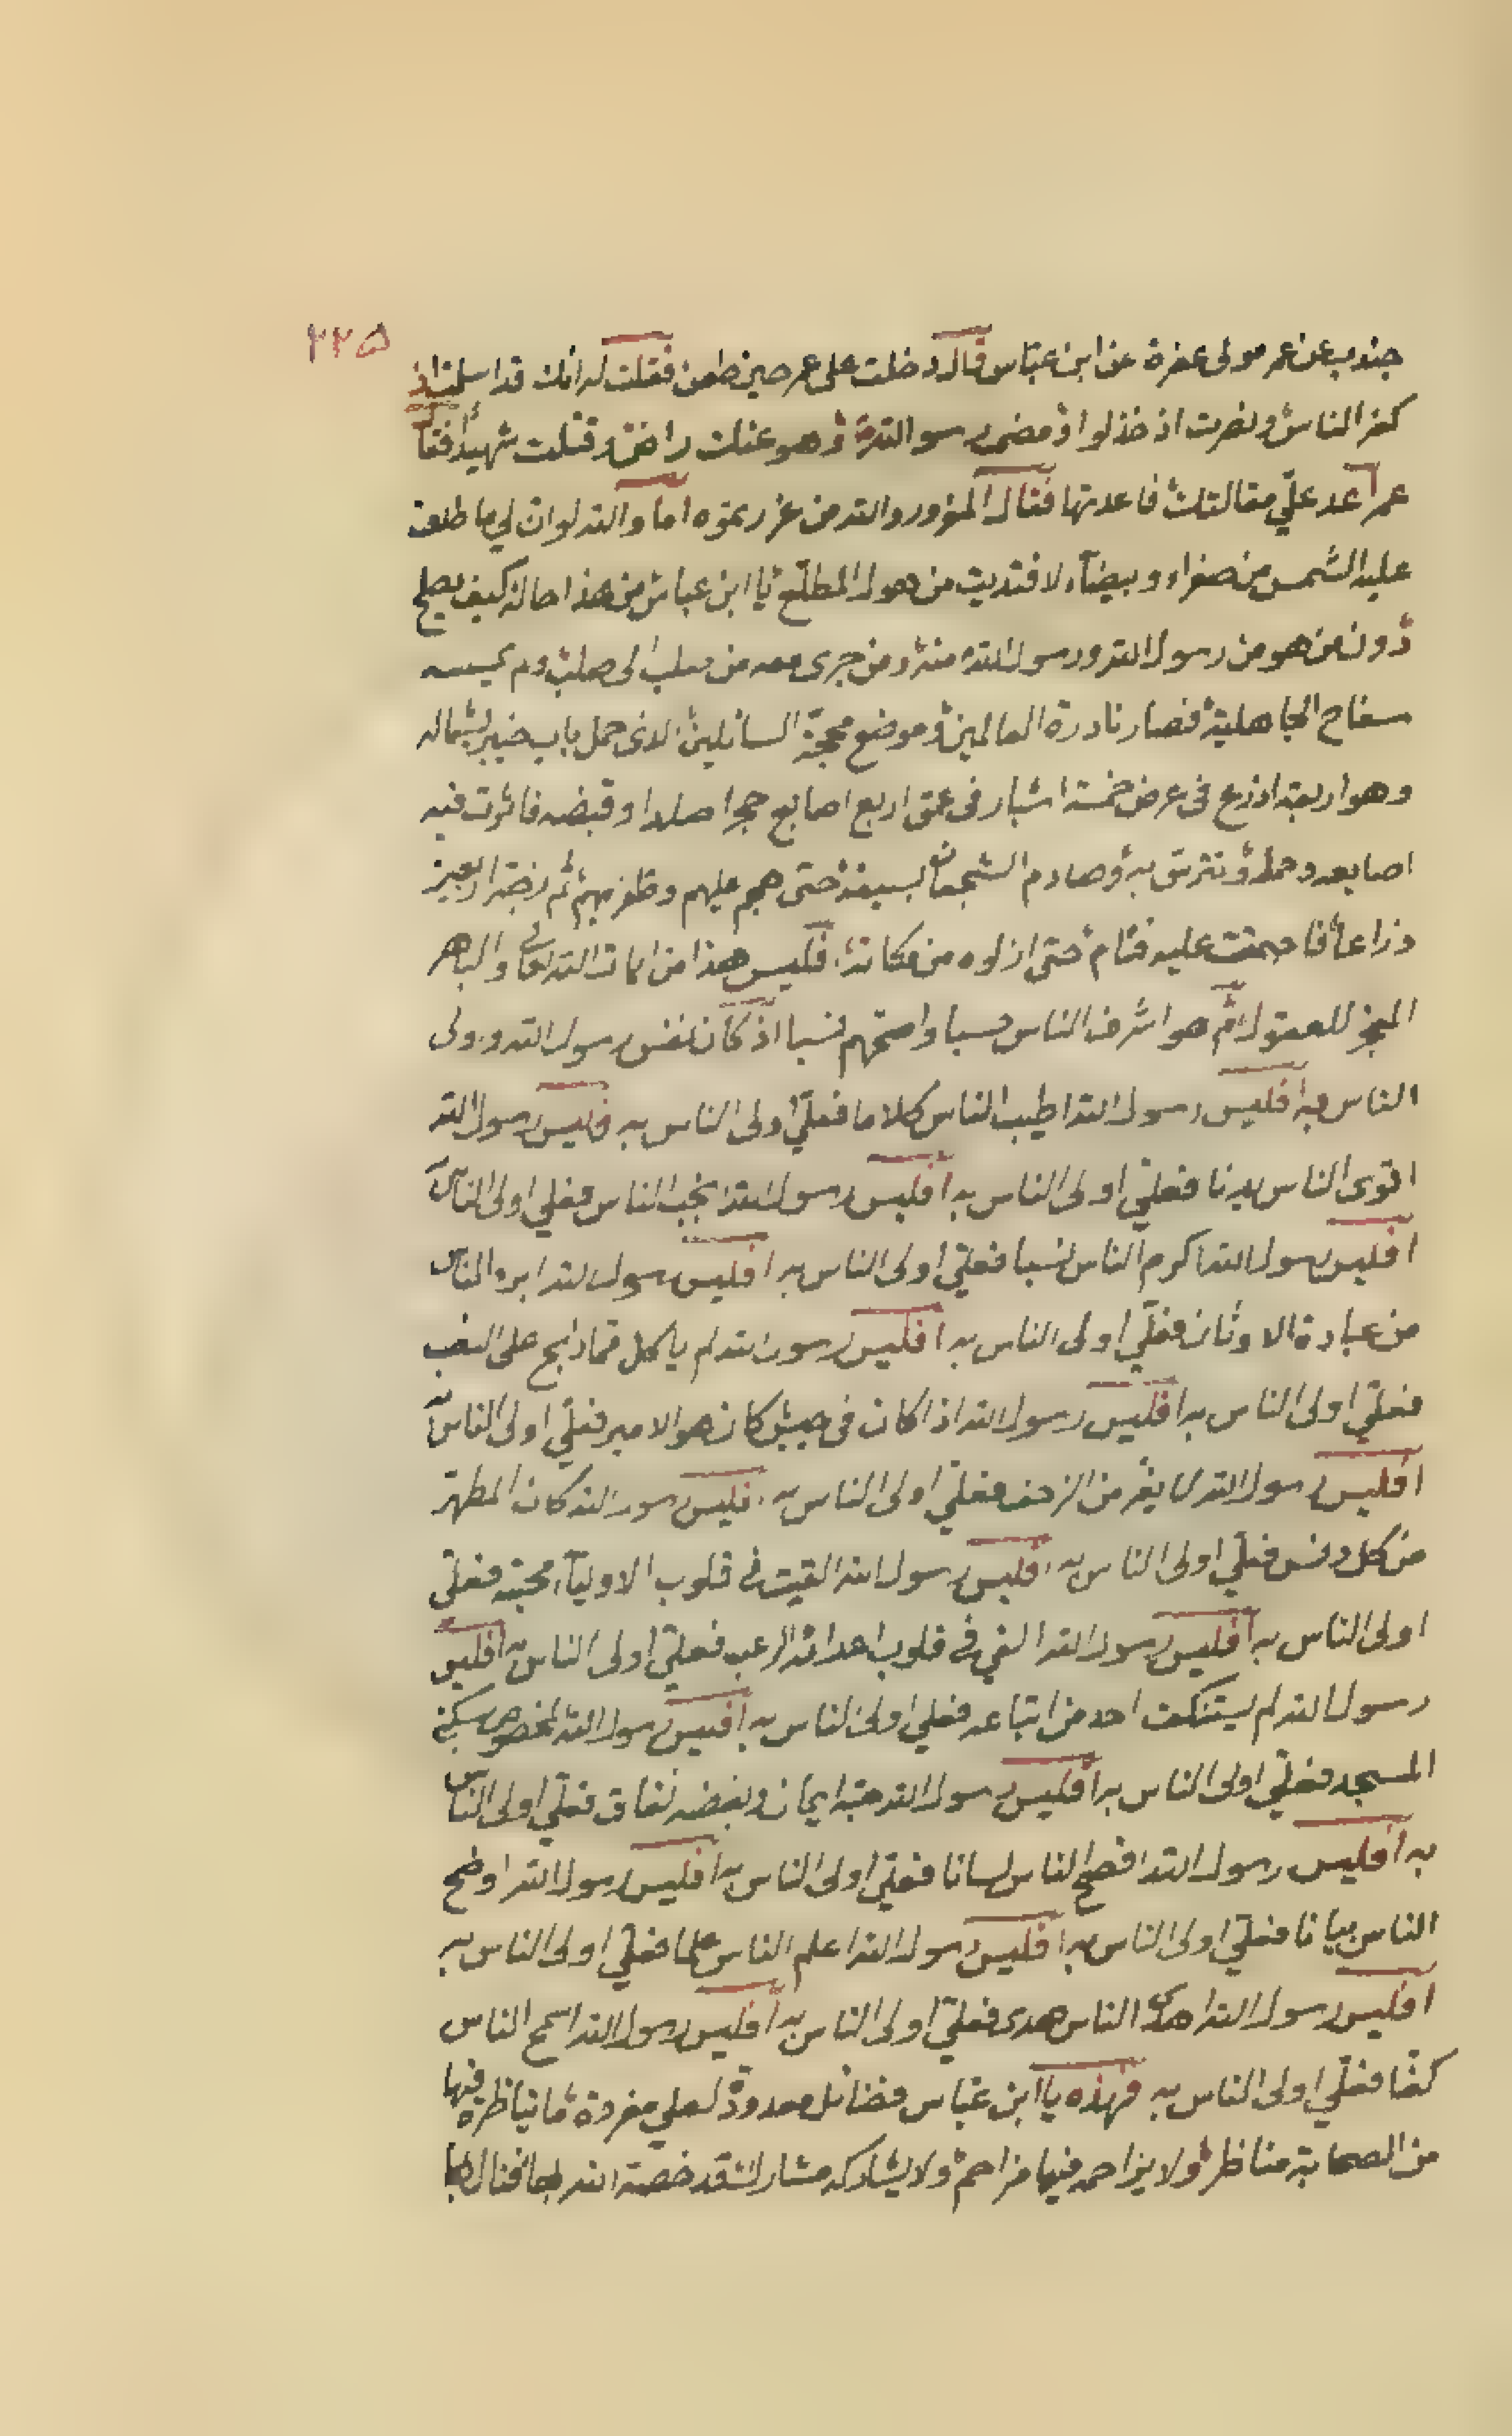 ٢٢٥
جندب عن عمر مولى عفرة عن ابن عباس قال دخلت على عمر حين طعن فقلت له انك قد اسلمت اذ
كفر الناس ونصرت اذ خذلوا ومضى رسول الله وهو عنك راض وقتلت شهيدا فقال
عمر اعد علي مقالتك فاعدتها فقال المغرور والله من غررتموه اما والله لو ان لي ما طلعت
عليه الشمس من صفراء وبيضاء لافتديت من هول المطلع يا ابن عباس من هذا حاله كيف يصلح
دون من هو من رسول الله ورسول الله منه ومن جرى معه من صلب الى صلب ولم يمسسه
سفاح الجاهلية فصار نادرة العالمين وموضع محجة السائلين الذي حمل باب خيبر بشماله
وهو اربعة اذرع في عرض خمسة اشبار في عمق اربع اصابع حجرا صلدا وقبضه فاثرت فيه
اصابعه وحمله وتترس به وصادم الشجعان بسيفه حتى هجم عليهم وظفر بهم ثم زجه اربعين
ذراعا فاجمعت عليه فئام حتى ازلوه من مكانه فليس هذا من ايات الله تعالى والباهر
المعجز للعقول ثم هو اشرف الناس حسبا واصحهم نسبا اذ كان نفس رسول الله واولى
الناس به افليس رسول الله اطيب الناس كلاما فعلي اولى الناس به فليس رسول الله
اقوى الناس بدنا فعلي اولى الناس به افليس رسول الله انجب الناس فعلي اولى الناس به
افليس رسول الله اكرم الناس نسبا فعلي اولى الناس به افليس رسول الله ابرء الناس
من عبادة الاوثان فعلي اولى الناس به افليس رسول الله لم ياكل مما ذبح على النصب
فعلي اولى الناس به افليس رسول الله اذا كان في جيش كان هو الامير فعلي اولى الناس به
افليس رسول الله لا يفر من الزحف فعلي اولى الناس به افليس رسول الله كان المطهر
من كل دنس فعلي اولى الناس به افليس رسول الله القيت في قلوب الاولياء محبته فعلي
اولى الناس به افليس رسول الله القي في قلوب اعدائه الرعب فعلي اولى الناس به افليس
رسول الله لم يستنكف احد من اتباعه فعلي اولى الناس به افليس رسول الله المخصوص بسكنى
المسجد فعلي اولى الناس به افليس رسول الله حبه ايمان وبغضه نفاق فعلي اولى الناس
به افليس رسول الله افصح الناس لسانا فعلي اولى الناس به افليس رسول الله اوضح
الناس بيانا فعلي اولى الناس به افليس رسول الله اعلم الناس علما فعلي اولى الناس به
افليس رسول الله اهدى الناس هدى فعلي اولى الناس به افليس رسول الله اسمح الناس
كفا فعلي اولى الناس به فهذه يا ابن عباس فضائل معدودة لعلي مفردة ما يناظره فيها
من الصحابة مناظر ولا يزاحمه فيها مزاحم ولا يشاركه مشارك لقد خصه الله بها فقال